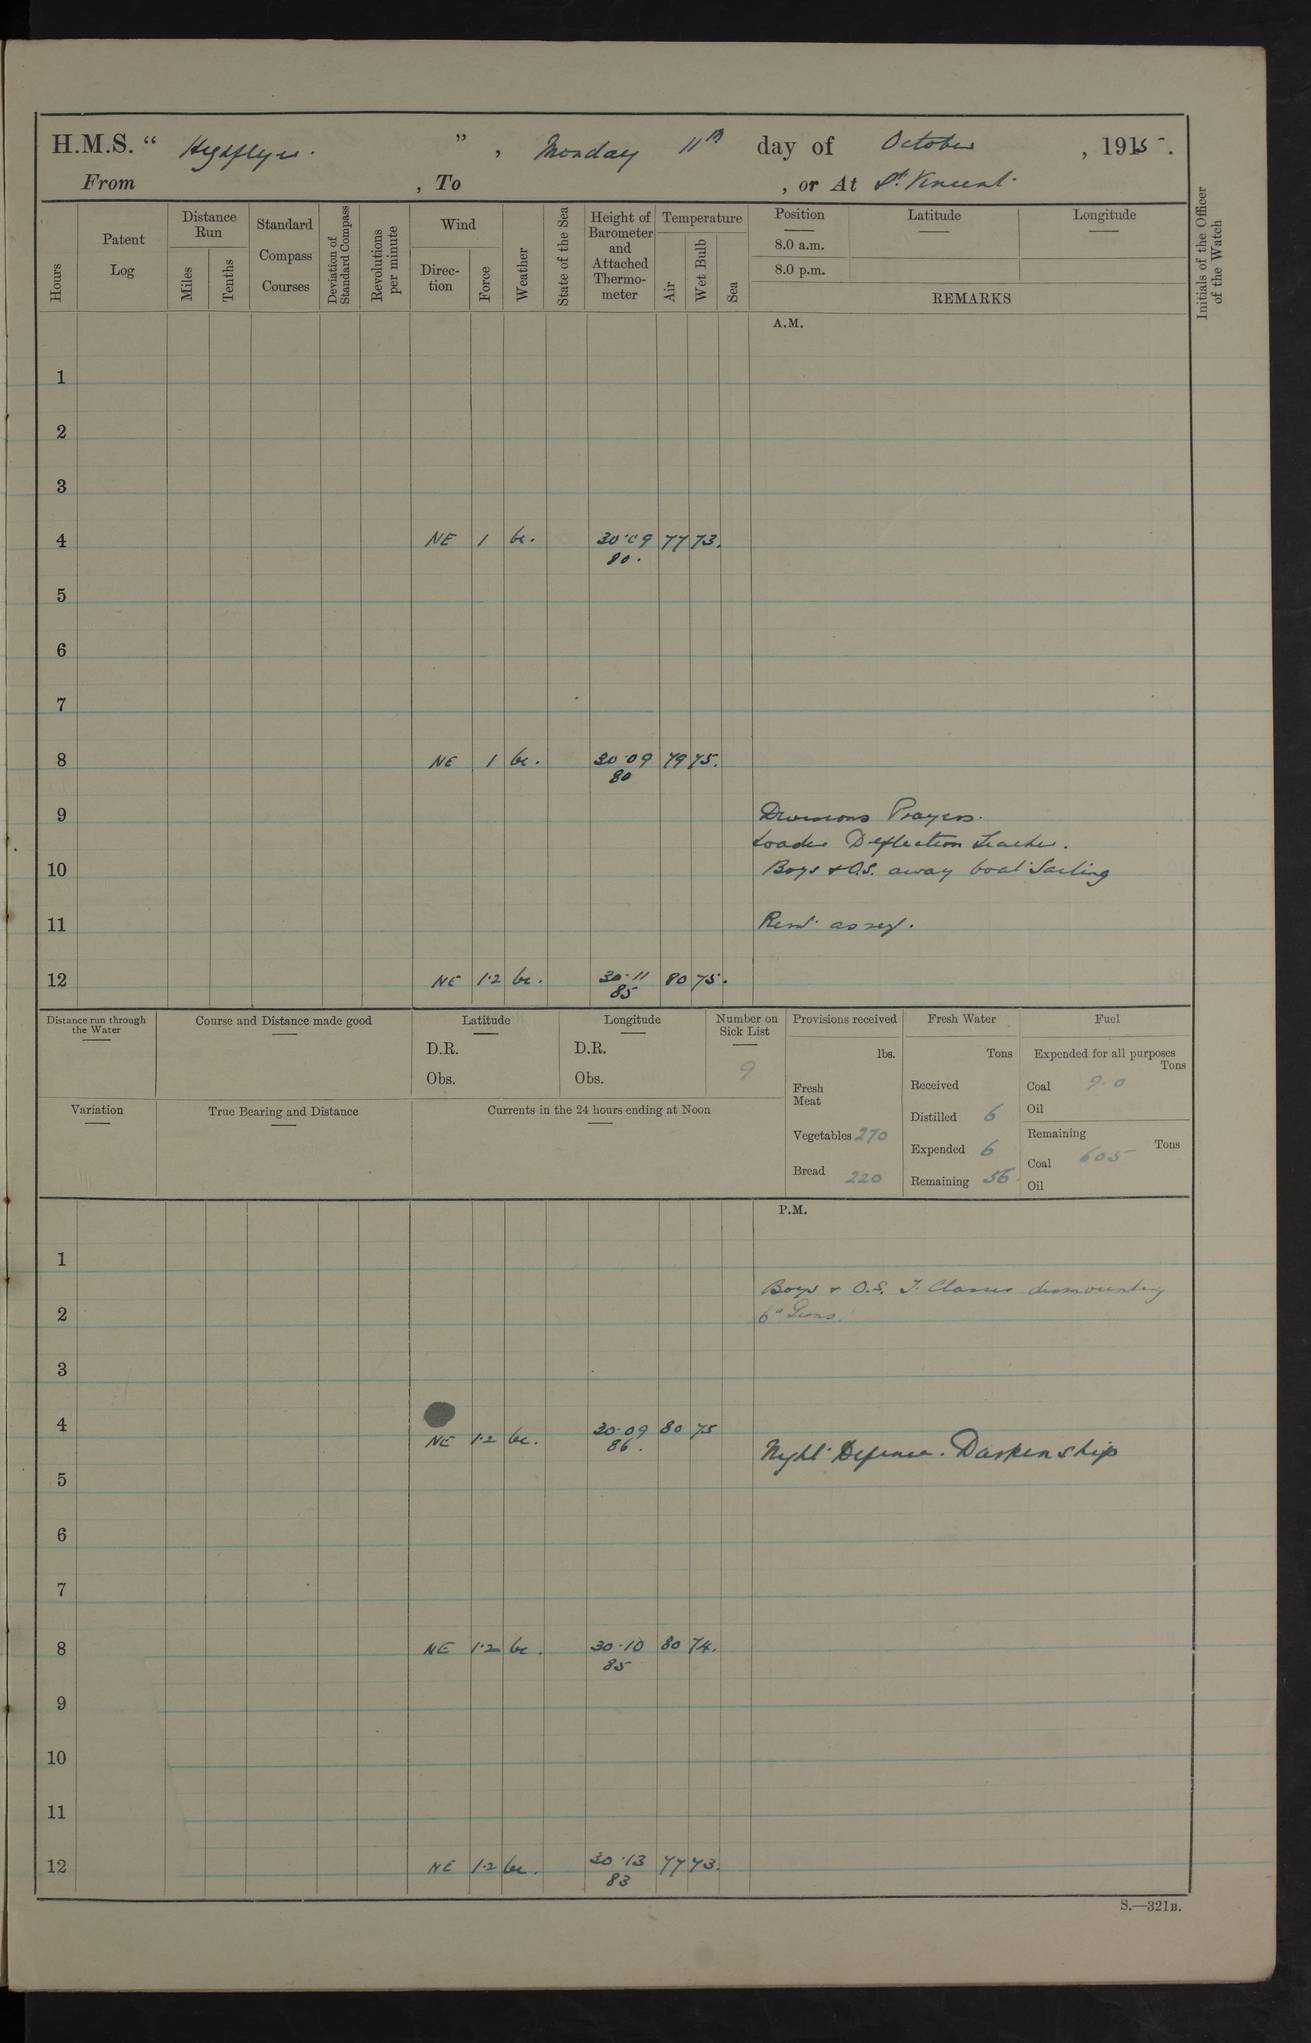 H.M.S. “ Highflyer. ” , Monday 11th day of October , 1915.
From , To , or At St. Vincent.
Hours
Patent Log
Distance Run
Miles
Tenths
Standard Compass Courses
Deviation of Standard Compass
Revolutions per minute
Wind
Direction
Force
Weather
State of the Sea
Height of Barometer and Attached Thermometer
Temperature
Air
Wet Bulb
Sea
Position
8.0 a.m.
8.0 p.m.
Latitude
Longitude
REMARKS
Initials of the Officer of the Watch
A.M.
1
2
3
4 NE 1 bc. 30.09 77 73.
80.
5
6
7
8 NE 1 bc. 30.09 79 75.
80
9 Divisions Prayers.
Loader Deflection Teacher.
10 Boys & O.S. away boat Sailing
11
12 NE 1.2 bc. 30.11 80 75.
85
Distance run through the Water
Course and Distance made good
Latitude
D.R.
Obs.
Longitude
D.R.
Obs.
Number on Sick List
9
Provisions received
lbs.
Fresh Meat
Vegetables 270
Bread 220
Fresh Water
Tons
Received
Distilled 6
Expended 6
Remaining 56
Fuel
Expended for all purposes
Tons
Coal 9.0
Oil
Remaining
Tons
Coal 605
Oil
Variation
True Bearing and Distance
Currents in the 24 hours ending at Noon
P.M.
1
Boys & O.S. T. Classes dismounting
2 6" Guns.
3
4 NE 1.2 bc. 30.09 80 75
86.
Night Defence. Darken ship
5
6
7
8 NE 1.2 bc. 30.10 80 74.
85
9
10
11
12 NE 1.2 bc. 30.13 77 73.
83
S.—321B.